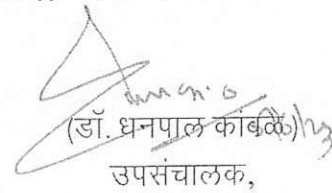 (डॉ. धनपाल कांबळे)
उपसंचालक,